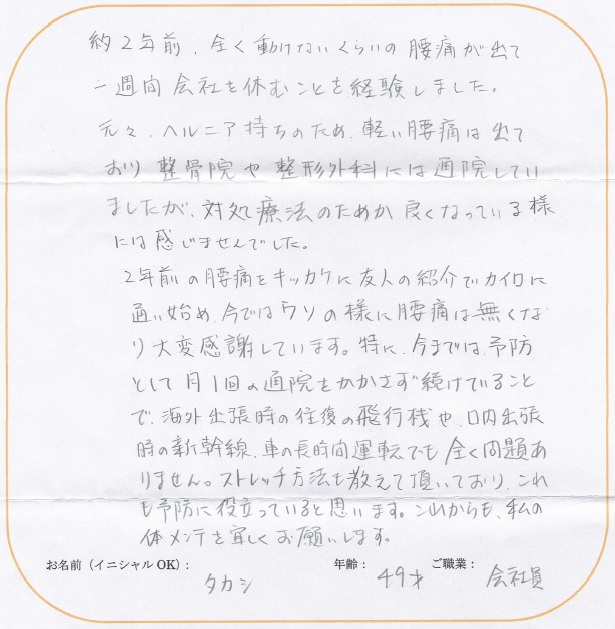 約2年前、全く動けないくらいの腰痛が出て
一週間会社を休むことを経験しました。
元々、ヘルニア持ちのため、軽い腰痛は出て
おり整骨院や整形外科には通院してい
ましたが、対処療法のためか良くなっている様
には感じませんでした。
2年前の腰痛をキッカケに友人の紹介でカイロに
通い始め、今ではウソの様に腰痛は無くな
り大変感謝しています。特に、今までは、予防
として月1回の通院をかかさず続けていること
で、海外出張時の往復の飛行機や、国内出張
時の新幹線、車の長時間運転でも全く問題あ
りません。ストレッチ方法も教えて頂いており、これ
も予防に役立っていると思います。これからも、私の
体メンテを宜しくお願いします。
お名前（イニシャルOK）： タカシ 年齢： 49才 ご職業： 会社員